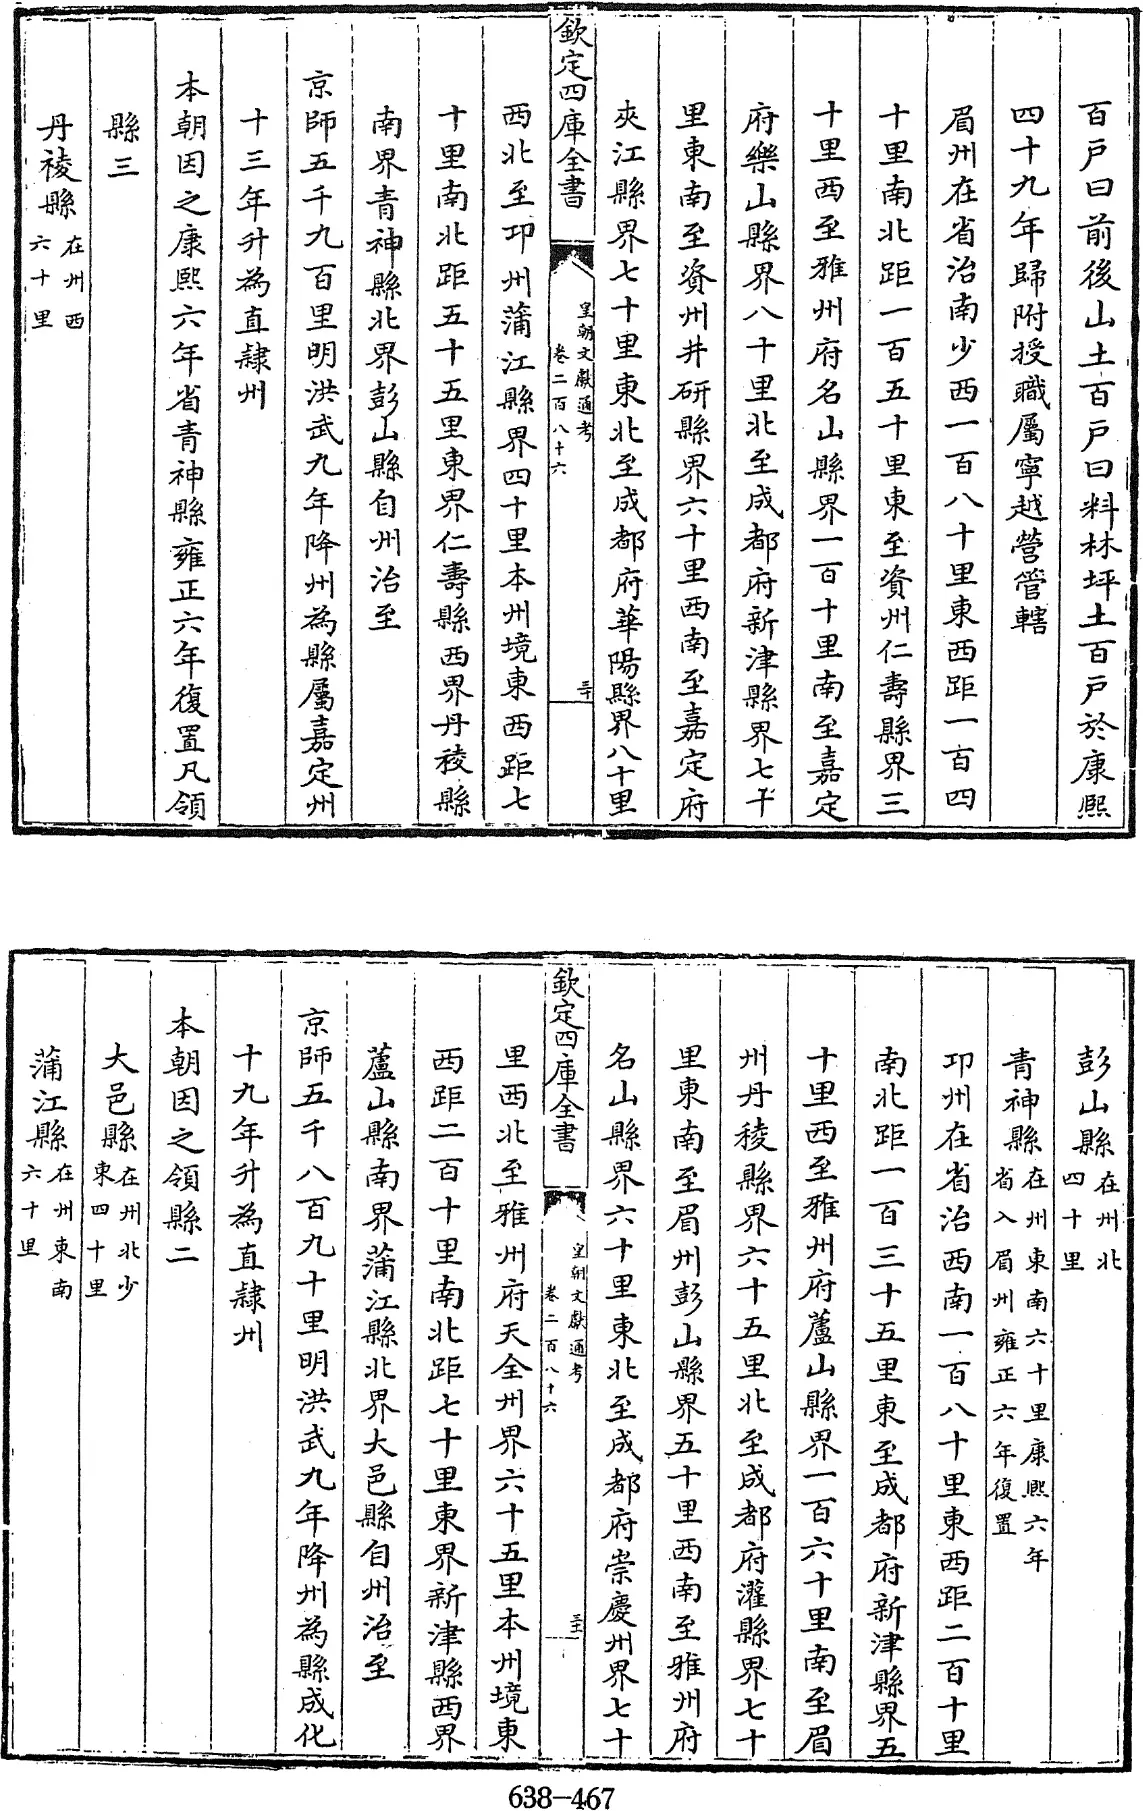 百戸曰前後山土百戸曰料林坪土百戸於康熙
四十九年歸附授職屬寧越營管轄
眉州在省治南少西一百八十里東西距一百四
十里南北距一百五十里東至資州仁壽縣界三
十里西至雅州府名山縣界一百十里南至嘉定
府樂山縣界八十里北至成都府新津縣界七十
里東南至資州井研縣界六十里西南至嘉定府
夾江縣界七十里東北至成都府華陽縣界八十里
欽定四庫全書
皇朝文獻通考
卷二百八十六
三十
西北至卭州蒲江縣界四十里本州境東西距七
十里南北距五十五里東界仁壽縣西界丹稜縣
南界青神縣北界彭山縣自州治至
京師五千九百里明洪武九年降州為縣屬嘉定州
十三年升為直隸州
本朝因之康熙六年省青神縣雍正六年復置凡領
縣三
丹稜縣在州西
六十里
彭山縣在州北
四十里
青神縣在州東南六十里康熙六年
省入眉州雍正六年復置
卭州在省治西南一百八十里東西距二百十里
南北距一百三十五里東至成都府新津縣界五
十里西至雅州府蘆山縣界一百六十里南至眉
州丹稜縣界六十五里北至成都府灌縣界七十
里東南至眉州彭山縣界五十里西南至雅州府
名山縣界六十里東北至成都府崇慶州界七十
欽定四庫全書
皇朝文獻通考
卷二百八十六
三十一
里西北至雅州府天全州界六十五里本州境東
西距二百十里南北距七十里東界新津縣西界
蘆山縣南界蒲江縣北界大邑縣自州治至
京師五千八百九十里明洪武九年降州為縣成化
十九年升為直隸州
本朝因之領縣二
大邑縣在州北少
東四十里
蒲江縣在州東南
六十里
638-467